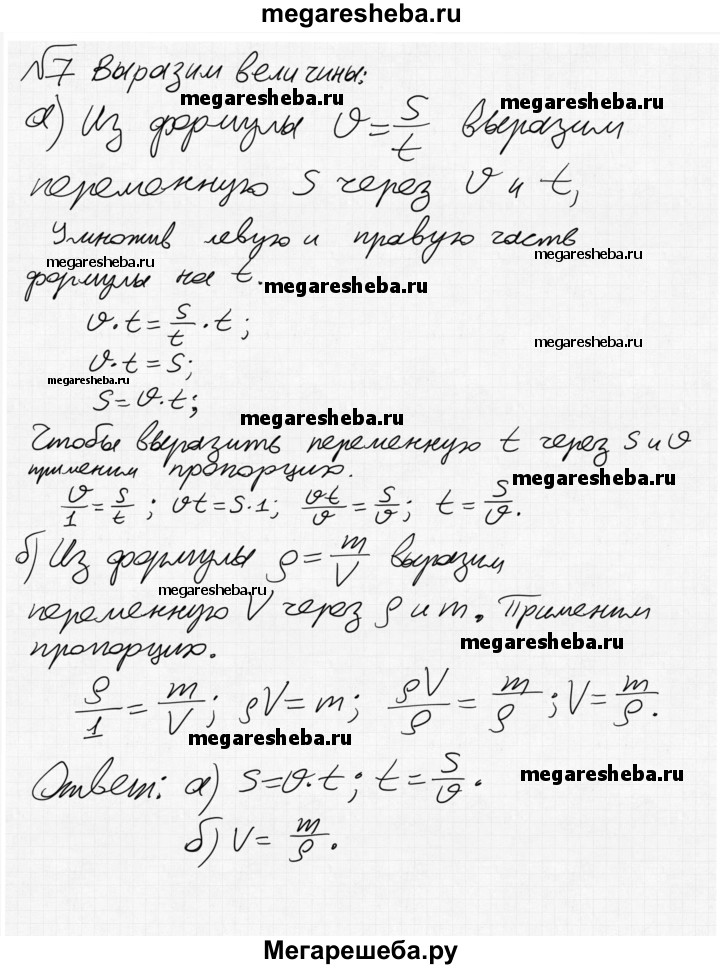 megaresheba.ru
№7 Выразим величины:
megaresheba.ru megaresheba.ru
а) Из формулы υ = S/t выразим
переменную S через υ и t,
Умножив левую и правую часть
megaresheba.ru megaresheba.ru
формулы на t.
megaresheba.ru
υ·t = S/t · t;
megaresheba.ru
υ·t = S;
megaresheba.ru
S = υ·t;
megaresheba.ru
Чтобы выразить переменную t через S и υ
применим пропорцию.
megaresheba.ru
υ/1 = S/t ; υt = S·1; υt/υ = S/υ; t = S/υ.
б) Из формулы ρ = m/V выразим
megaresheba.ru
переменную V через ρ и m. Применим
megaresheba.ru
пропорцию.
ρ/1 = m/V; ρV = m; ρV/ρ = m/ρ; V = m/ρ.
megaresheba.ru
Ответ: а) S = υ·t; t = S/υ.
megaresheba.ru
б) V = m/ρ.
Мегарешеба.ру